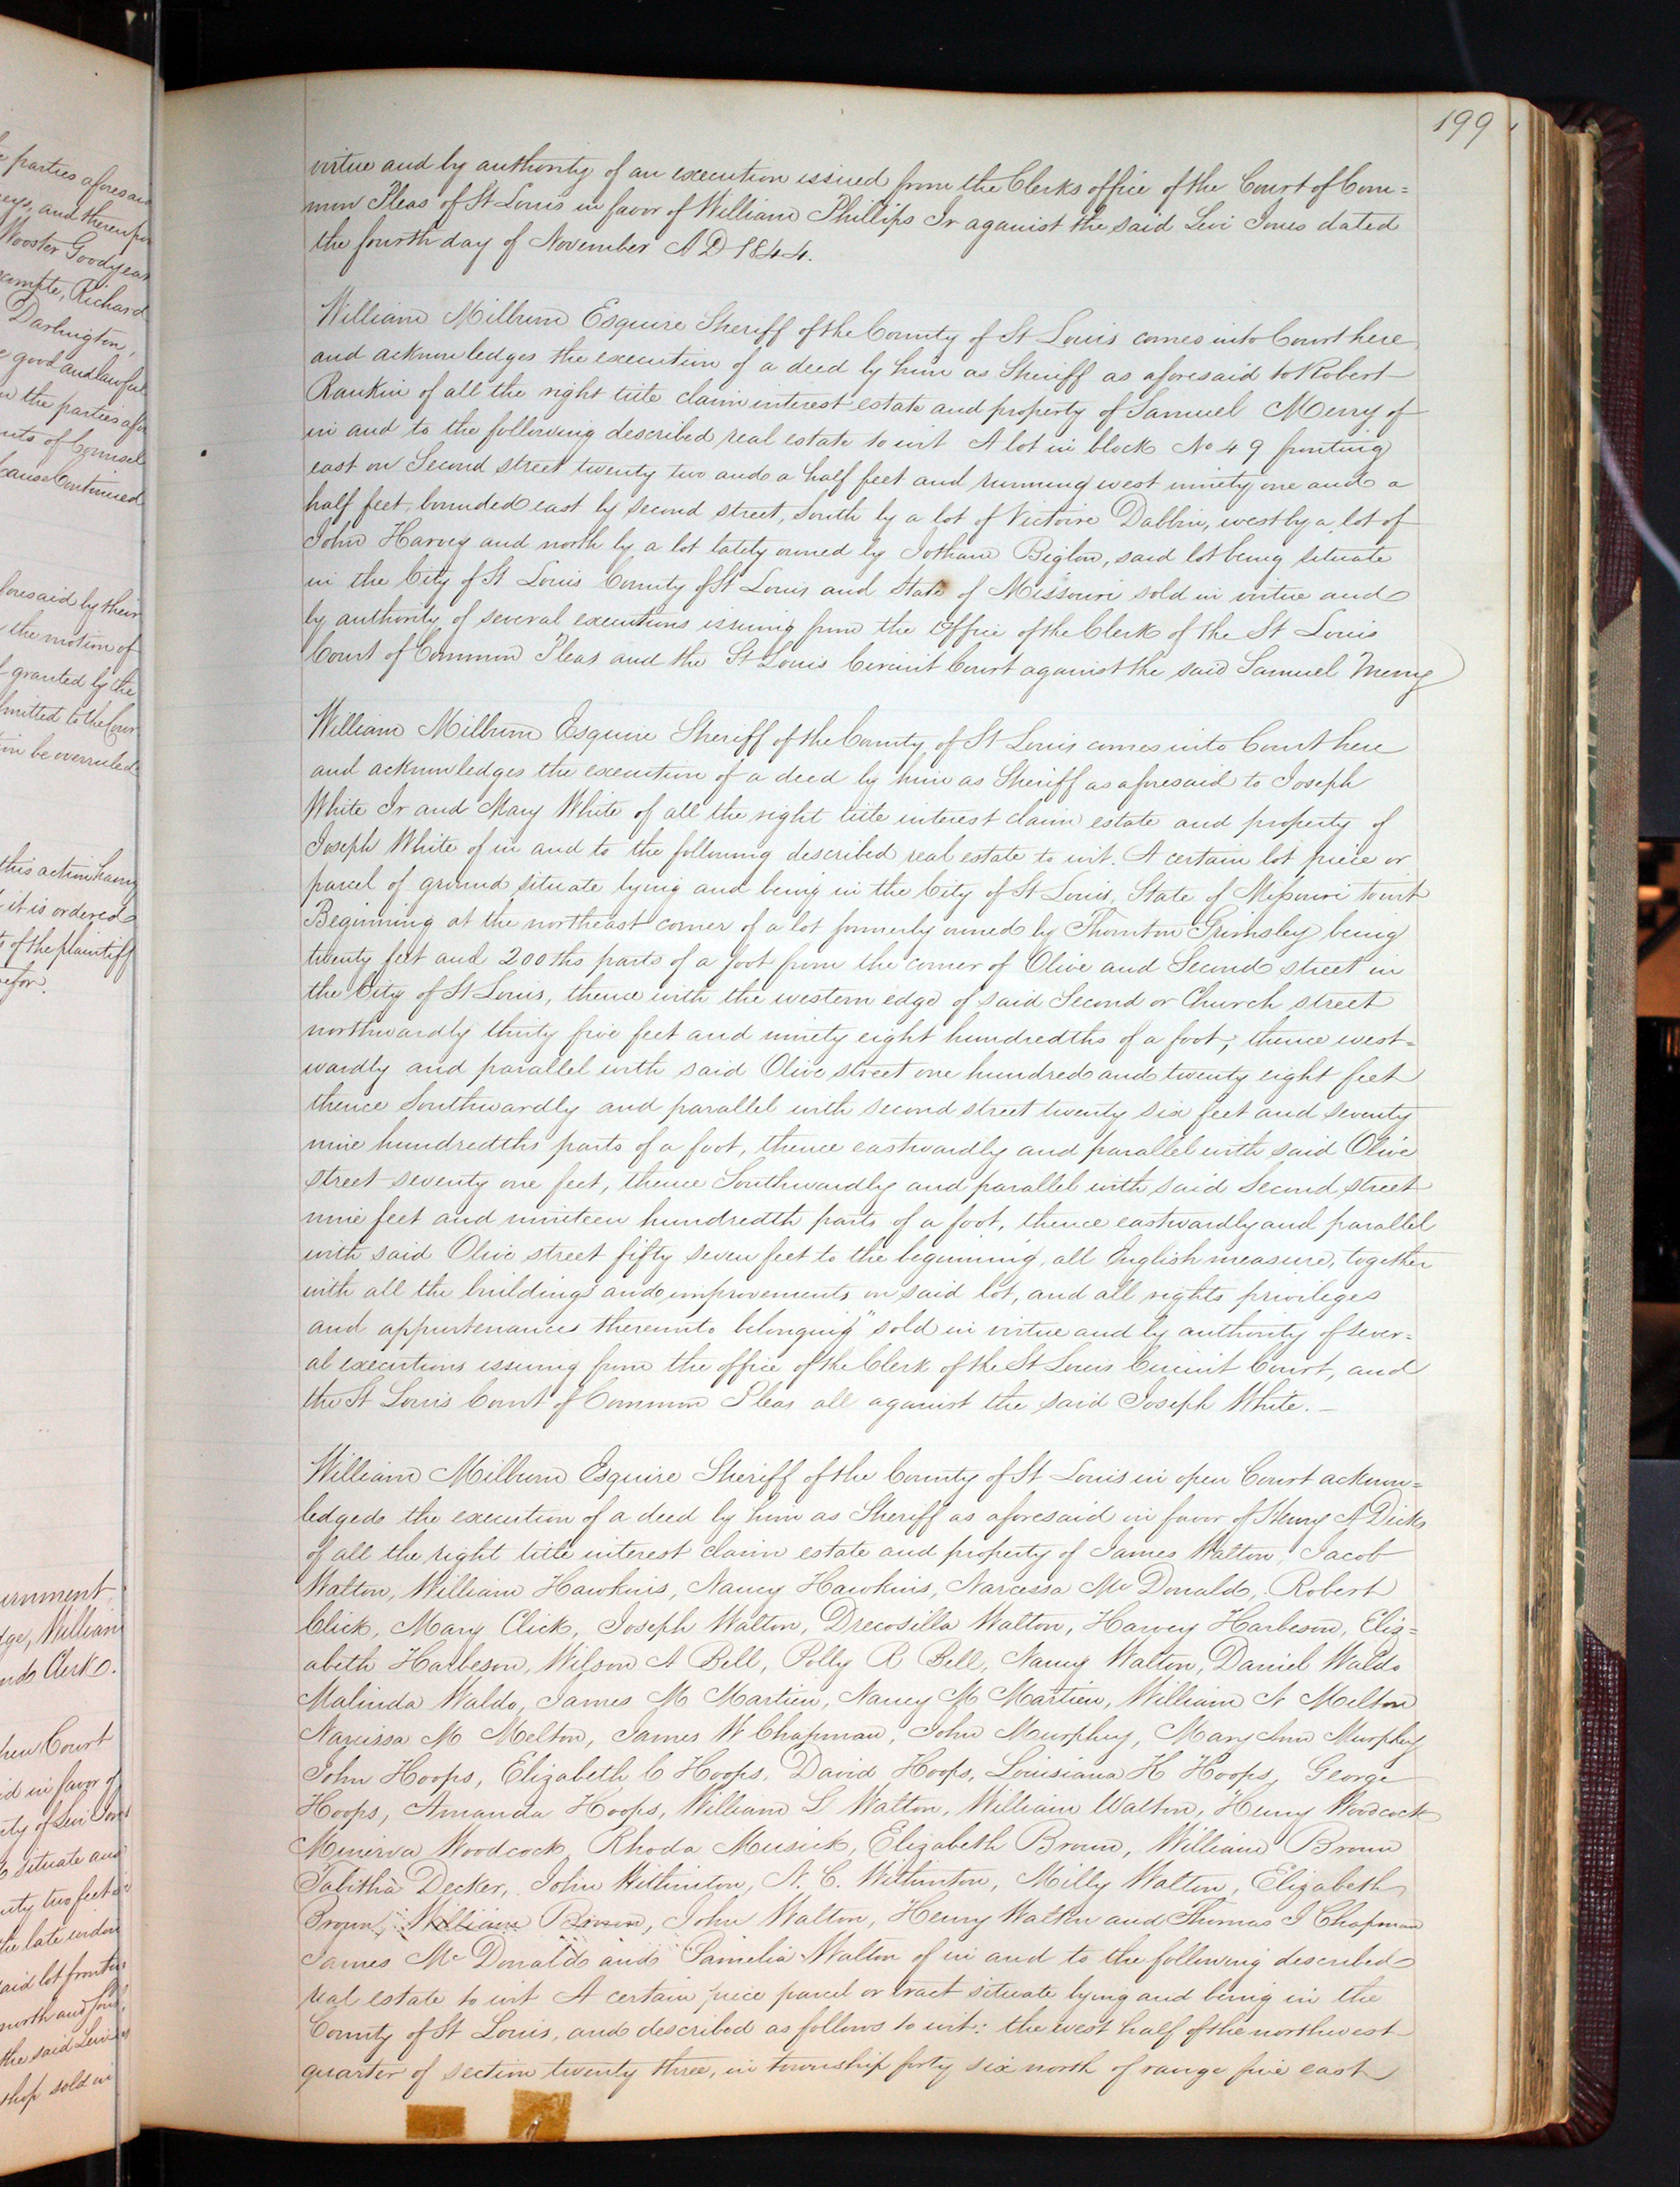 parties aforesaid
and thereupon
Wooster Goodyear
Richard
Darlington,
good and lawful
the parties afo
of Counsel
Cause Continued
foresaid by their
the motion of
granted by the
mitted to the Cour
be overruled
this action having
it is ordered
of the plaintiff
William
Clerk.
Court
in favor of
situate and
two feet
the late
said lot fronting
north and
the said Levi
sold in
199
virtue and by authority of an execution issued from the Clerks office of the Court of Com=
mon Pleas of St Louis in favor of William Phillips Jr against the said Levi Jones dated
the fourth day of November A D 1844.
William Milburn Esquire Sheriff of the County of St Louis comes into Court here
and acknowledges the execution of a deed by him as Sheriff as aforesaid to Robert
Rankin of all the right title claim interest estate and property of Samuel Merry of
in and to the following described real estate to wit A lot in block No 49 fronting
east on Second street twenty two and a half feet and running west ninety one and a
half feet, bounded east by second street, South by a lot of Victoire Dabbin, west by a lot of
John Harvey and north by a lot lately owned by Jotham Biglow, said lot being situate
in the City of St Louis County of St Louis and State of Missouri sold in virtue and
by authority of several executions issuing from the Office of the Clerk of the St Louis
Court of Common Pleas and the St Louis Circuit Court against the said Samuel Merry
William Milburn Esquire Sheriff of the County of St Louis comes into Court here
and acknowledges the execution of a deed by him as Sheriff as aforesaid to Joseph
White Jr and Mary White of all the right title interest claim estate and property of
Joseph White of in and to the following described real estate to wit. A certain lot piece or
parcel of ground situate lying and being in the City of St Louis, State of Missouri to wit
Beginning at the northeast corner of a lot formerly owned by Thornton Grimsley being
twenty feet and 200ths parts of a foot from the corner of Olive and Second street in
the City of St Louis, thence with the western edge of said Second or Church street
northwardly thirty five feet and ninety eight hundredths of a foot; thence west=
wardly and parallel with said Olive street one hundred and twenty eight feet
thence Southwardly and parallel with second street twenty six feet and seventy
nine hundredths parts of a foot, thence eastwardly and parallel with said Olive
street seventy one feet, thence Southwardly and parallel with said Second street
nine feet and nineteen hundredth parts of a foot, thence eastwardly and parallel
with said Olive street fifty seven feet to the beginning, all English measure, together
with all the buildings and improvements on said lot, and all rights privileges
and appurtenances thereunto belonging" sold in virtue and by authority of sever=
al executions issuing from the office of the Clerk of the St Louis Circuit Court, and
the St Louis Court of Common Pleas all against the said Joseph White. –
William Milburn Esquire Sheriff of the County of St Louis in open Court acknow=
ledged the execution of a deed by him as Sheriff as aforesaid in favor of Henry A Dicks
of all the right title interest claim estate and property of James Walton, Jacob
Walton, William Hawkins, Nancy Hawkins, Narcessa Mc Donald, Robert
Click, Mary Click, Joseph Walton, Drecosilla Walton, Harvey Harbeson, Eliz=
abeth Harbeson, Wilson A Bell, Polly R Bell, Nancy Walton, Daniel Waldo
Malinda Waldo, James M Martien, Nancy M Martien, William N Melton
Narcissa M Melton, James W Chapman, John Murphey, Mary Ann Murphey
John Hoops, Elizabeth C Hoops, David Hoops, Louisiana K Hoops, George
Hoops, Amanda Hoops, William L Walton, William Walton, Henry Woodcock
Minerva Woodcock, Rhoda Musick, Elizabeth Brown, William Brown
Tabitha Decker, John Withinton, N. C. Withinton, Milly Walton, Elizabeth
Brown, William Brown, John Walton, Henry Walton and Thomas J Chapman
James Mc Donald and Pamelia Walton of in and to the following described
real estate to wit A certain piece parcel or tract situate lying and being in the
County of St Louis, and described as follows to wit: the west half of the northwest
quarter of section twenty three, in township forty six north of range five east